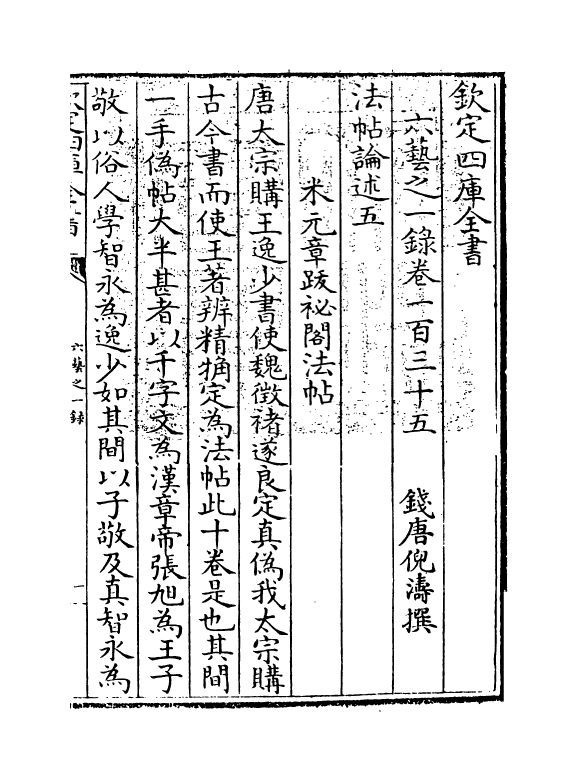 欽定四庫全書
六藝之一錄卷一百三十五　　錢唐倪濤撰
法帖論述五
米元章跋祕閣法帖
唐太宗購王逸少書使魏徵褚遂良定真偽我太宗購
古今書而使王著辨精觕定為法帖此十卷是也其間
一手偽帖大半甚者以千字文為漢章帝張旭為王子
敬以俗人學智永為逸少如其間以子敬及真智永為
欽定四庫全書
六藝之一錄